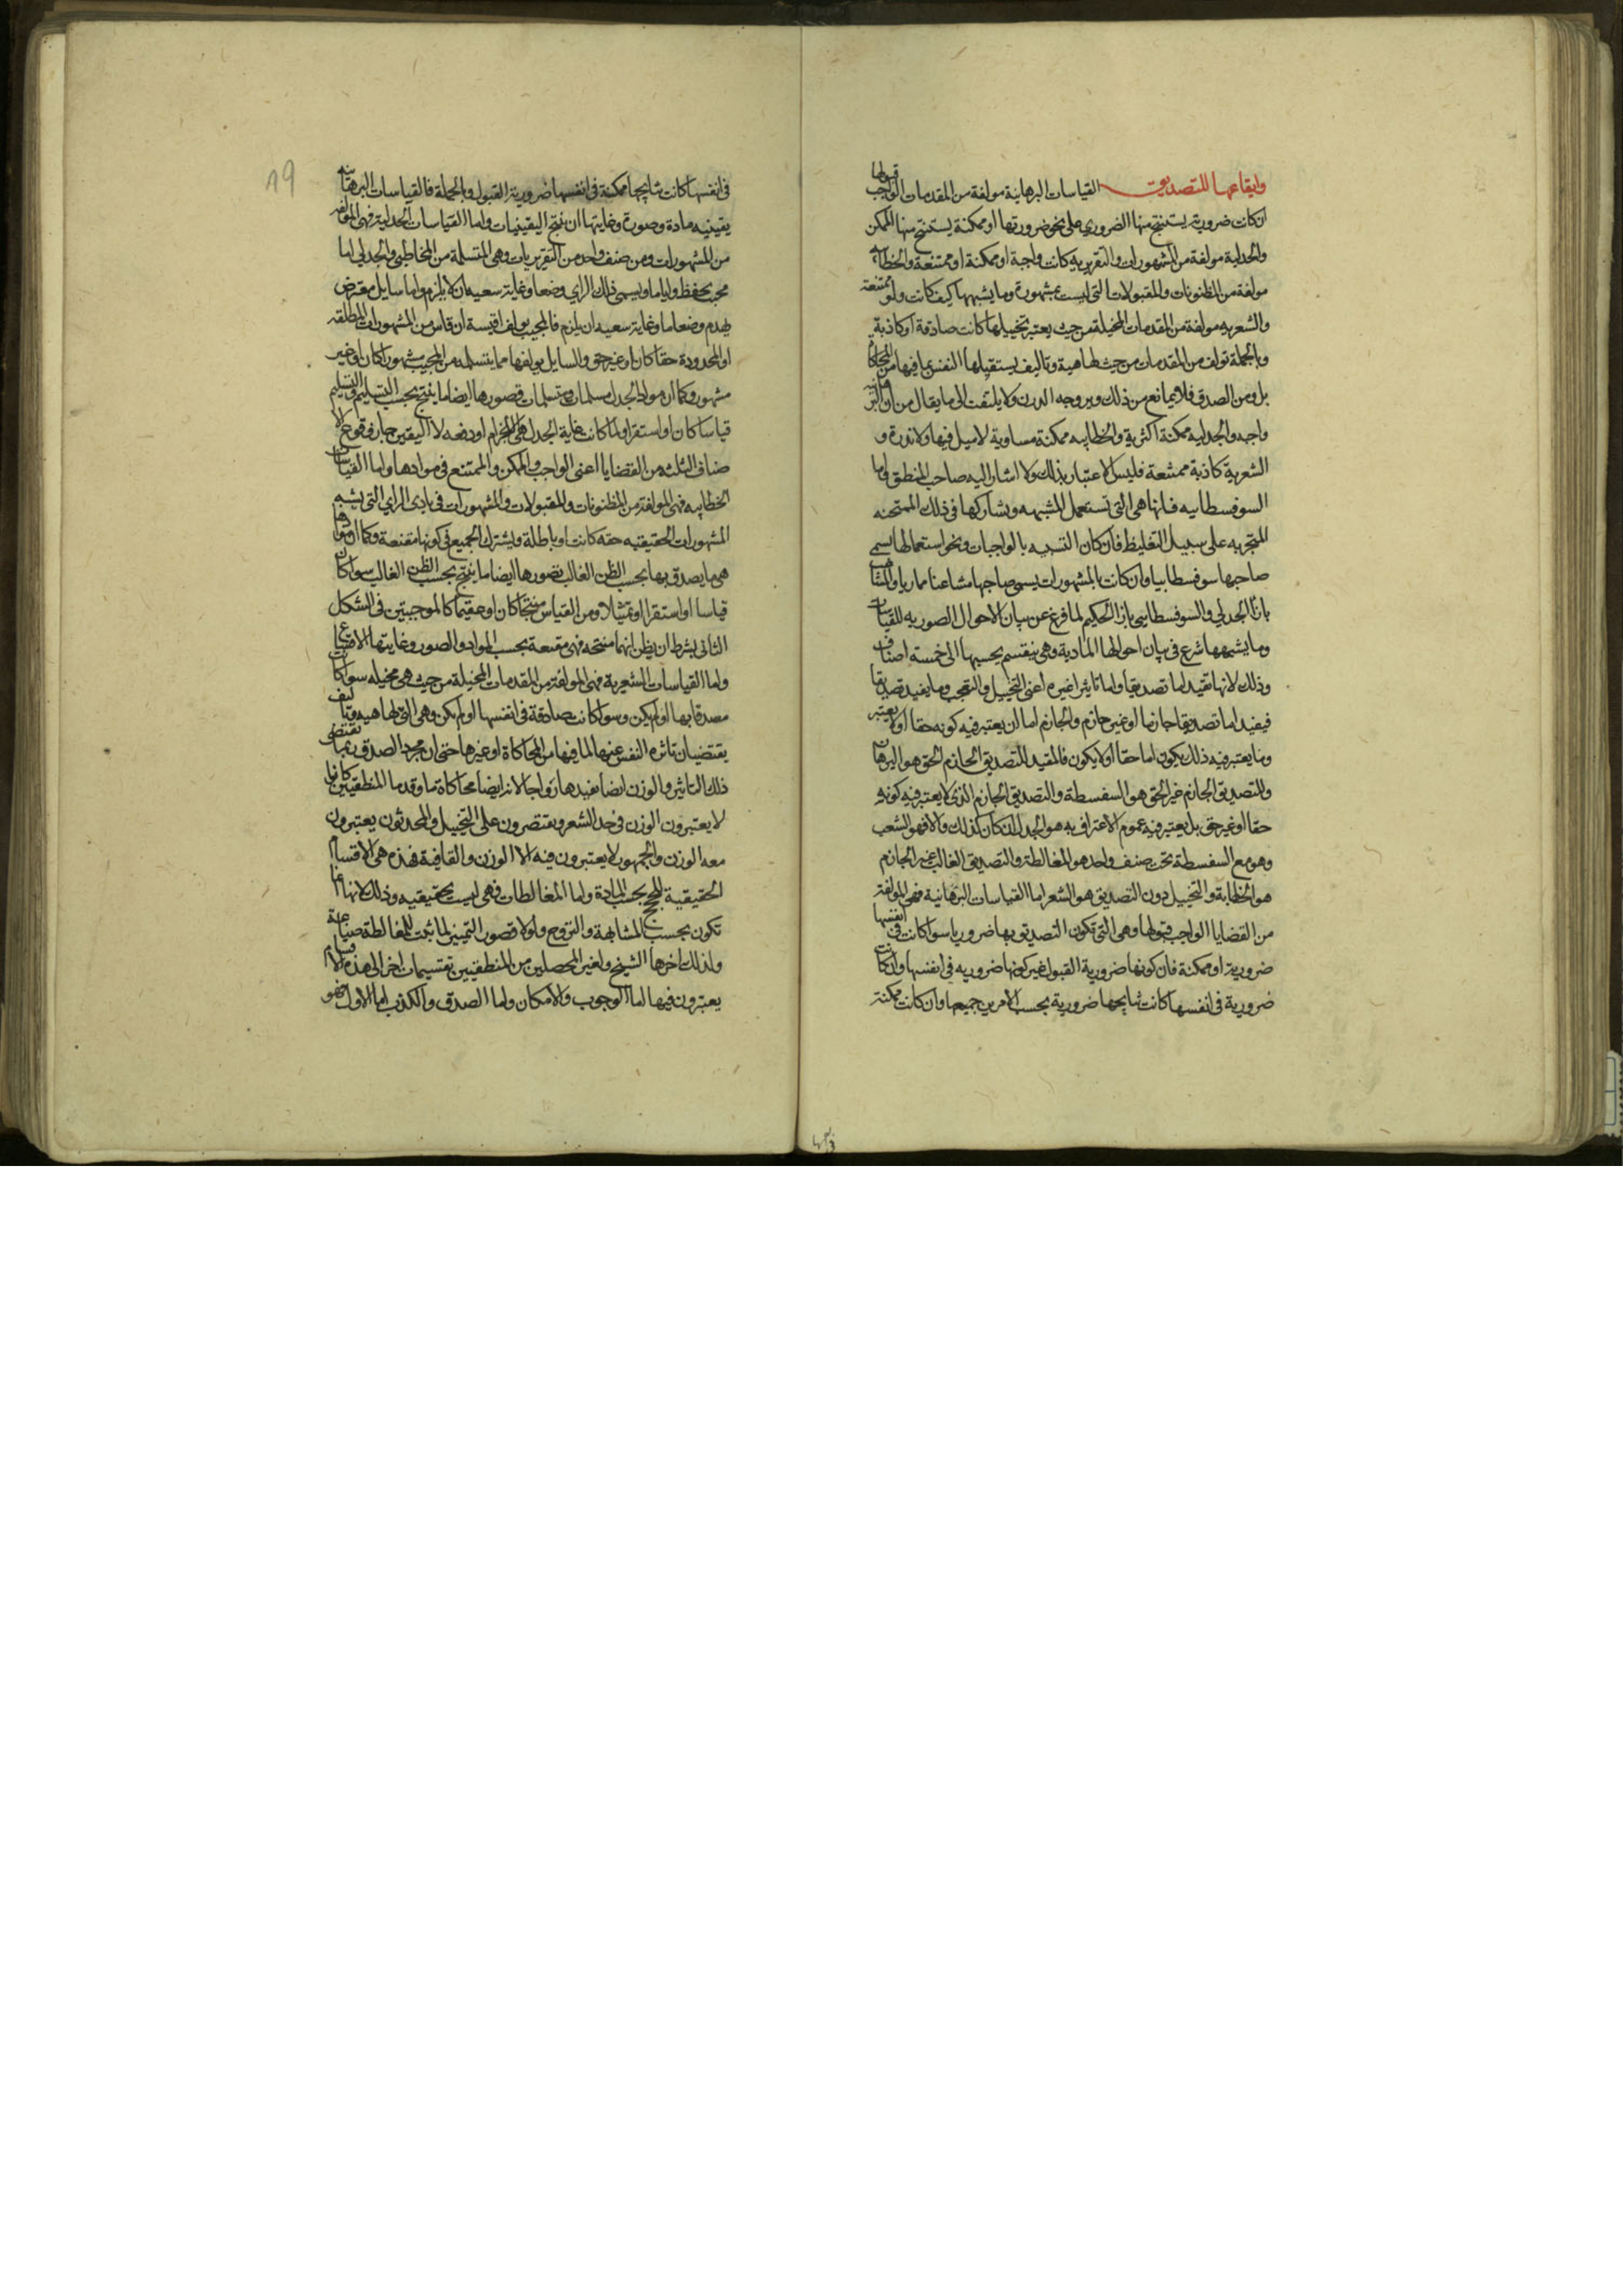 وايقاعها للتصديق القياسات البرهانية مولفة من المقدمات الواجب قبولها
ان كانت ضرورية يستنتج منها الضروري على نحو ضرورتها او ممكنة يستنتج منها الممكن
والجدلية مولفة من المشهورات والتقريرية كانت واجبة او ممكنة او ممتنعة والخطابية
مولفة من المظنونات والمقبولات التي ليست بمشهورة وما يشبهها كيف كانت ولو ممتنعة
والشعريه مولفة من المقدمات المخيلة من حيث يعتبر تخييلها كانت صادقة او كاذبة
وبالجملة تولف من المقدمات من حيث لها هيية وتاليف يستقبلها النفس بما فيها من المحاكاة
بل ومن الصدق فلا يمانع من ذلك ويروجه الوزن ولا يلتفت الى ما يقال من ان البرهانية
واجبه والجدليه ممكنة اكثرية والخطابيه ممكنة مساوية لا ميل فيها ولا ندرة و
الشعرية كاذبة ممتنعة فليس الاعتبار بذلك ولا اشار اليه صاحب المنطق واما
السوفسطاييه فانها هي التي تستعمل المشبهه ويشاركها في ذلك الممتحنه
المجربه على سبيل التغليظ فان كان التشبيه بالواجبات ونحو استعمالها سمي
صاحبها سوفسطاييا وان كانت بالمشهورات يسمى صاحبها مشاغبا مماريا والمشاغب
بازا الجدلي والسوفسطايي بازا الحكيم لما فرغ عن بيان الاحوال الصوريه للقياسات
وما يشبهها شرع في بيان احوالها المادية وهي ينقسم بحسبها الى خمسة اصناف
وذلك لانها تفيد اما تصديقا واما تاثيرا غيره اعني التخييل والتعجب وما يفيد تصديقا
فيفيد اما تصديقا جازما او غير جازم والجازم اما ان يعتبر فيه كونه حقا او لا يعتبر
وما يعتبر فيه ذلك يكون اما حقا او لا يكون فالمفيد للتصديق الجازم الحق هو البرهان
والتصديق الجازم غير الحق هو السفسطة والتصديق الجازم الذي لا يعتبر فيه كونه
حقا او غير حق بل يعتبر فيه عموم الاعتراف به هو الجدل ان كان كذلك والا فهو الشغب
وهو مع السفسطة تحت صنف واحد هو المغالطة والتصديق الغالب غير الجازم
هو الخطابة والتخييل دون التصديق هو الشعر اما القياسات البرهانية فهي المولفة
من القضايا الواجب قبولها وهي التي تكون التصديق بها ضروريا سوا كانت في انفسها
ضرورية او ممكنة فان كونها ضرورية القبول غير كونها ضروريه في انفسها وان كانت
ضرورية في انفسها كانت نتايجها ضرورية بحسب الامرين جميعا وان كانت ممكنة
19
في انفسها كانت نتايجها ممكنة في انفسها ضرورية القبول وبالجملة فالقياسات البرهانية
يقينيه مادة وصورة وغايتها ان ينتج اليقينيات واما القياسات الجدلية فهي المولفة
من المشهورات ومن صنف واحد من التقريريات وهي المتسلمة من المخاطبين والجدلي اما
مجيب يحفظ رايا ما ويسمى ذلك الراي وضعا وغاية سعيه ان لا يلزم واما سايل معترض
يهدم وضعا ما وغاية سعيه ان يلزم فالمجيب يولف اقيسة ان قاس من المشهورات المطلقه
او المحدودة حقا كان او غير حق والسايل يولفها مما يتسلمه من المجيب مشهورا كان او غير
مشهور وكما ان مواد الجدل مسلمات ومتسلمات فصورها ايضا ما ينتج بحسب التسليم والتسليم
قياسا كان او استقرا ولما كانت غاية الجدل هي الالزام او دفعه لا اليقين جاز وقوع الا
صناف الثلثه من القضايا اعني الواجب والممكن والممتنع في موادها واما القياسات
الخطابيه فهي المولفة من المظنونات والمقبولات والمشهورات في بادي الراي التي يشبه
المشهورات الحقيقيه حقه كانت او باطلة ويشترك الجميع في كونها مقنعة وكما ان موادها
هي ما يصدق بها بحسب الظن الغالب فصورها ايضا ما ينتج بحسب الظن الغالب سوا كان
قياسا او استقرا او تمثيلا ومن القياس منتجا كان او عقيما كالموجبتين في الشكل
الثاني بشرط ان يظن انهما منتجه فهي مقنعة بحسب المواد والصور وغايتها الاقناع
واما القياسات الشعرية فهي المولفة من المقدمات المخيلة من حيث هي مخيله سوا كانت
مصدقا بها او لم يكن وسوا كانت صادقة في انفسها او لم يكن وهي التي لها هيية وتاليف
يقتضيان تاثر النفس عنها لما فيها من المحاكاة او غيرها حتى ان مجرد الصدق ربما يقتضي
ذلك التاثير والوزن ايضا يفيدها رواجا لانه ايضا محاكاة ما وقدما المنطقيين كانوا
لا يعتبرون الوزن في حد الشعر ويقتصرون على التخييل والمحدثون يعتبرون
معه الوزن والجمهور لا يعتبرون فيه الا الوزن والقافية فهذه هي الاقسام
الحقيقية للحجج بحسب المادة واما المغالطات فهي ليست بحقيقيه وذلك لانها انما
تكون بحسب المشابهة والترويج ولولا قصور التمييز لما ثبت للمغالطة صناعة
ولذلك اخرها الشيخ ولغير المحصلين من المنطقيين تقسيمات اخر الى هذه الاقسام
يعتبرون فيها اما الوجوب والامكان واما الصدق والكذب اما الاول فهو